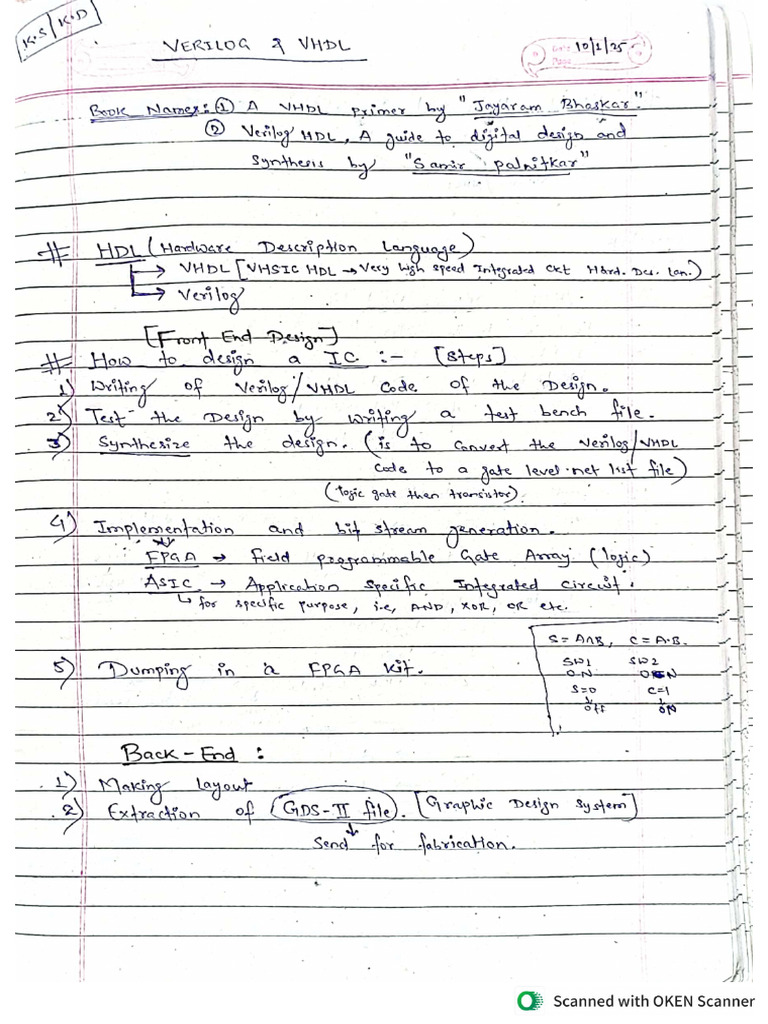 K.S/K.D
VERILOG & VHDL
Date 10/1/25
Page
Book Names: ① A VHDL primer by "Jayaram Bhaskar".
② Verilog HDL, A guide to digital design and
synthesis by "Samir palnitkar"
# HDL (Hardware Description Language)
→ VHDL [VHSIC HDL → Very high speed Integrated Ckt Hard. Des. Lan.)
→ Verilog
[Front End Design]
# How to design a IC :- [Steps]
1) Writing of Verilog/VHDL Code of the Design.
2) Test the Design by writing a test bench file.
3) Synthesize the design. (is to convert the Verilog/VHDL
Code to a gate level net list file)
(logic gate then transistor)
4) Implementation and bit stream generation.
FPGA → Field programmable Gate Array (logic)
ASIC → Application Specific Integrated Circuit.
↳ for specific purpose, i.e, AND, XOR, OR etc.
S = A⋂B, C = A.B.
SW1 SW2
ON ON
S=0 C=1
↓ ↓
off ON
5) Dumping in a FPGA Kit.
Back-End :
1) Making layout
2) Extraction of (GDS-II file). [Graphic Design System]
↓
Send for fabrication.
Scanned with OKEN Scanner